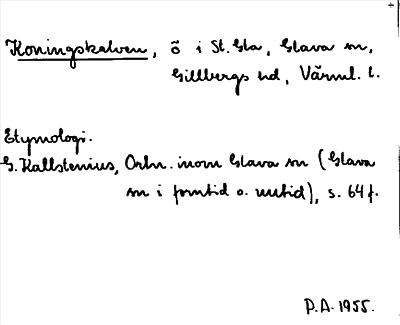 Koningskalven, ö i St. Gla, Glava sn,
Gillbergs hd, Värml. l.
Etymologi.
G. Kallstenius, Ortn. inom Glava sn (Glava
sn i forntid o. nutid), s. 64 f.
P.A. 1955.